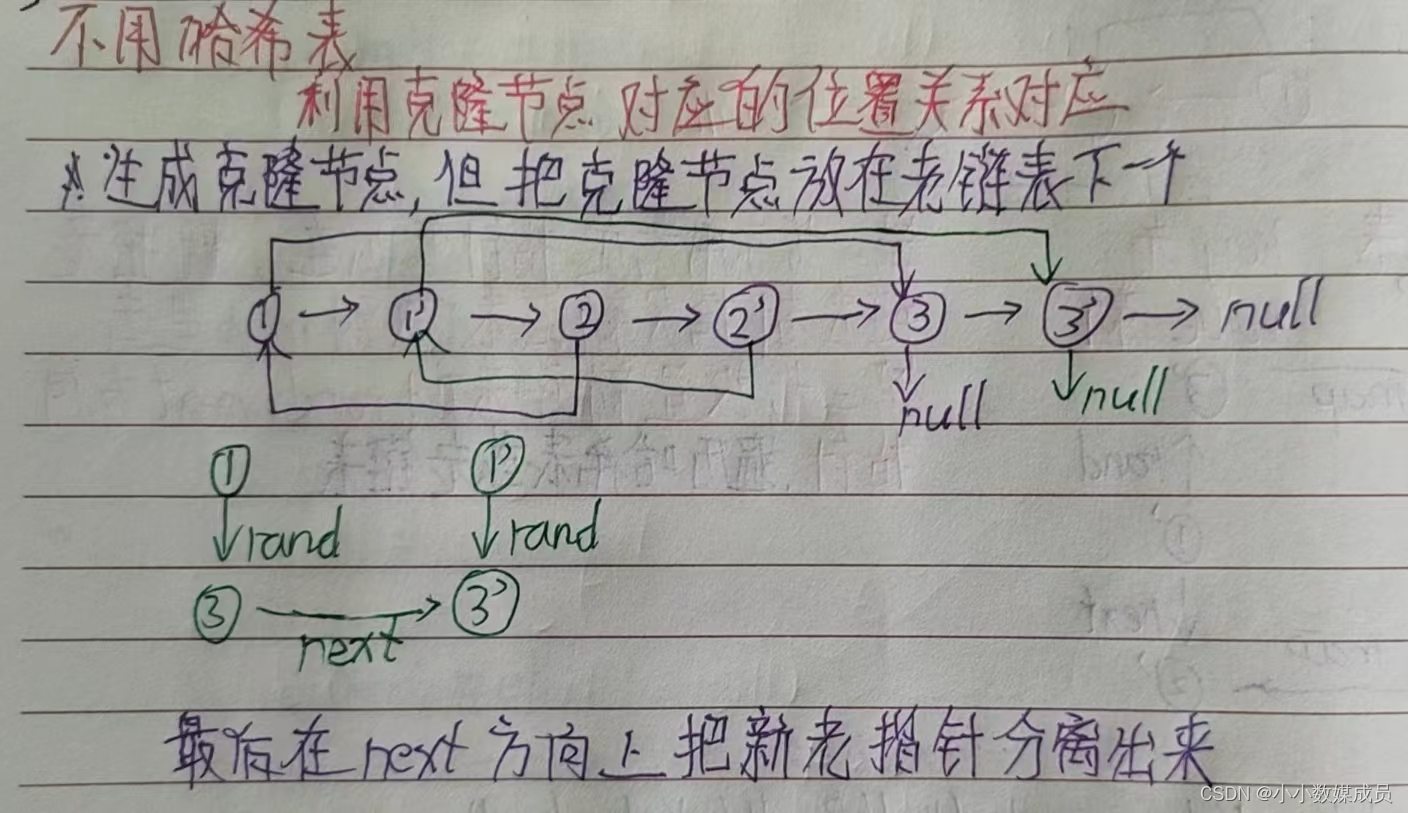 不用哈希表
利用克隆节点对应的位置关系对应
生成克隆节点,但把克隆节点放在老链表下一个
① → 1' → ② → 2' → ③ → 3' → null
null null
① 1'
rand rand
③ → 3'
next
最后在next方向上把新老指针分离出来
CSDN @小小数媒成员